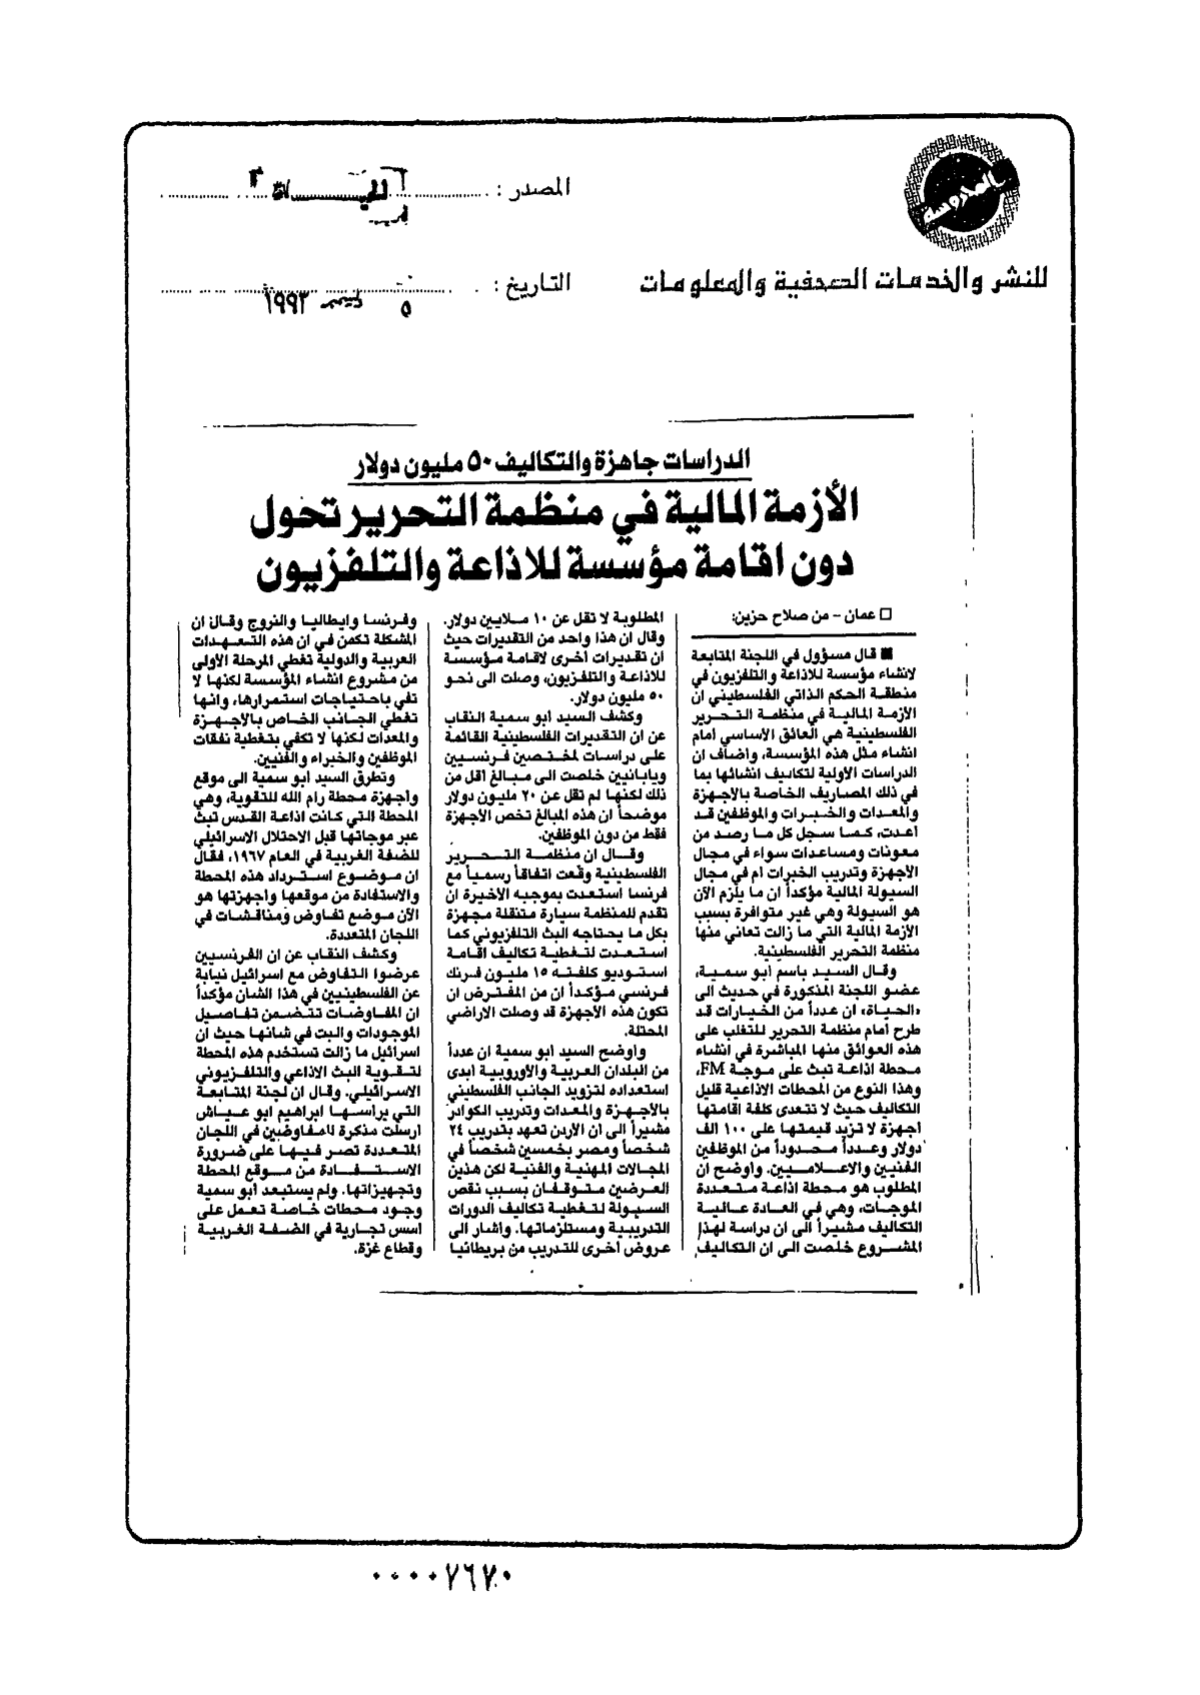 المحروسة
للنشر والخدمات الصحفية والمعلومات
المصدر :
التاريخ :
٥ ١٩٩٣
الدراسات جاهزة والتكاليف ٥٠ مليون دولار
الأزمة المالية في منظمة التحرير تحول
دون اقامة مؤسسة للاذاعة والتلفزيون
□ عمان – من صلاح حزين:
■ قال مسؤول في اللجنة المتابعة
لانشاء مؤسسة للاذاعة والتلفزيون في
منطقة الحكم الذاتي الفلسطيني ان
الأزمة المالية في منظمة التحرير
الفلسطينية هي العائق الأساسي امام
انشاء مثل هذه المؤسسة، واضاف ان
الدراسات الاولية لتكاليف انشائها بما
في ذلك المصاريف الخاصة بالاجهزة
والمعدات والخبرات والموظفين قد
أعدت، كما سجل كل ما رصد من
معونات ومساعدات سواء في مجال
الأجهزة وتدريب الخبرات ام في مجال
السيولة المالية مؤكداً ان ما يلزم الآن
هو السيولة وهي غير متوافرة بسبب
الأزمة المالية التي ما زالت تعاني منها
منظمة التحرير الفلسطينية.
وقال السيد باسم أبو سمية،
عضو اللجنة المذكورة في حديث الى
«الحياة»، ان عدداً من الخيارات قد
طرح أمام منظمة التحرير للتغلب على
هذه العوائق منها المباشرة في انشاء
محطة اذاعة تبث على موجة FM،
وهذا النوع من المحطات الاذاعية قليل
التكاليف حيث لا تتعدى كلفة اقامتها
اجهزة لا تزيد قيمتها على ١٠٠ الف
دولار وعدداً محدوداً من الموظفين
الفنيين والاعلاميين. وأوضح ان
المطلوب هو محطة اذاعة متعددة
الموجات، وهي في العادة عالية
التكاليف مشيراً الى ان دراسة لهذا
المشروع خلصت الى ان التكاليف
المطلوبة لا تقل عن ١٠ ملايين دولار.
وقال ان هذا واحد من التقديرات حيث
ان تقديرات اخرى لاقامة مؤسسة
للاذاعة والتلفزيون، وصلت الى نحو
٥٠ مليون دولار.
وكشف السيد أبو سمية النقاب
عن ان التقديرات الفلسطينية القائمة
على دراسات لمختصين فرنسيين
ويابانيين خلصت الى مبالغ اقل من
ذلك لكنها لم تقل عن ٢٠ مليون دولار
موضحاً ان هذه المبالغ تخص الأجهزة
فقط من دون الموظفين.
وقال ان منظمة التحرير
الفلسطينية وقعت اتفاقاً رسمياً مع
فرنسا استعدت بموجبه الاخيرة ان
تقدم للمنظمة سيارة متنقلة مجهزة
بكل ما يحتاجه البث التلفزيوني كما
استعدت لتغطية تكاليف اقامة
استوديو كلفته ١٥ مليون فرنك
فرنسي مؤكداً ان من المفترض ان
تكون هذه الأجهزة قد وصلت الاراضي
المحتلة.
واوضح السيد ابو سمية ان عدداً
من البلدان العربية والأوروبية أبدى
استعداده لتزويد الجانب الفلسطيني
بالأجهزة والمعدات وتدريب الكوادر
مشيراً الى ان الأردن تعهد بتدريب ٢٤
شخصاً ومصر بخمسين شخصاً في
المجالات المهنية والفنية لكن هذين
العرضين متوقفان بسبب نقص
السيولة لتغطية تكاليف الدورات
التدريبية ومستلزماتها. واشار الى
عروض أخرى للتدريب من بريطانيا
وفرنسا وايطاليا والنروج وقال ان
المشكلة تكمن في ان هذه التعهدات
العربية والدولية تغطي المرحلة الأولى
من مشروع انشاء المؤسسة لكنها لا
تفي باحتياجات استمرارها، وانها
تغطي الجانب الخاص بالاجهزة
والمعدات لكنها لا تكفي بتغطية نفقات
الموظفين والخبراء والفنيين.
وتطرق السيد ابو سمية الى موقع
واجهزة محطة رام الله للتقوية، وهي
المحطة التي كانت اذاعة القدس تبث
عبر موجاتها قبل الاحتلال الاسرائيلي
للضفة الغربية في العام ١٩٦٧، فقال
ان موضوع استرداد هذه المحطة
والاستفادة من موقعها واجهزتها هو
الآن موضع تفاوض ومناقشات في
اللجان المتعددة.
وكشف النقاب عن ان الفرنسيين
عرضوا التفاوض مع اسرائيل نيابة
عن الفلسطينيين في هذا الشأن مؤكداً
ان المفاوضات تتضمن تفاصيل
الموجودات والبت في شانها حيث ان
اسرائيل ما زالت تستخدم هذه المحطة
لتقوية البث الاذاعي والتلفزيوني
الاسرائيلي. وقال ان لجنة المتابعة
التي يراسها ابراهيم ابو عياش
ارسلت مذكرة للمفاوضين في اللجان
المتعددة تصر فيها على ضرورة
الاستفادة من موقع المحطة
وتجهيزاتها. ولم يستبعد أبو سمية
وجود محطات خاصة تعمل على
اسس تجارية في الضفة الغربية
وقطاع غزة.
٠٠٠٠٧٦٧٠